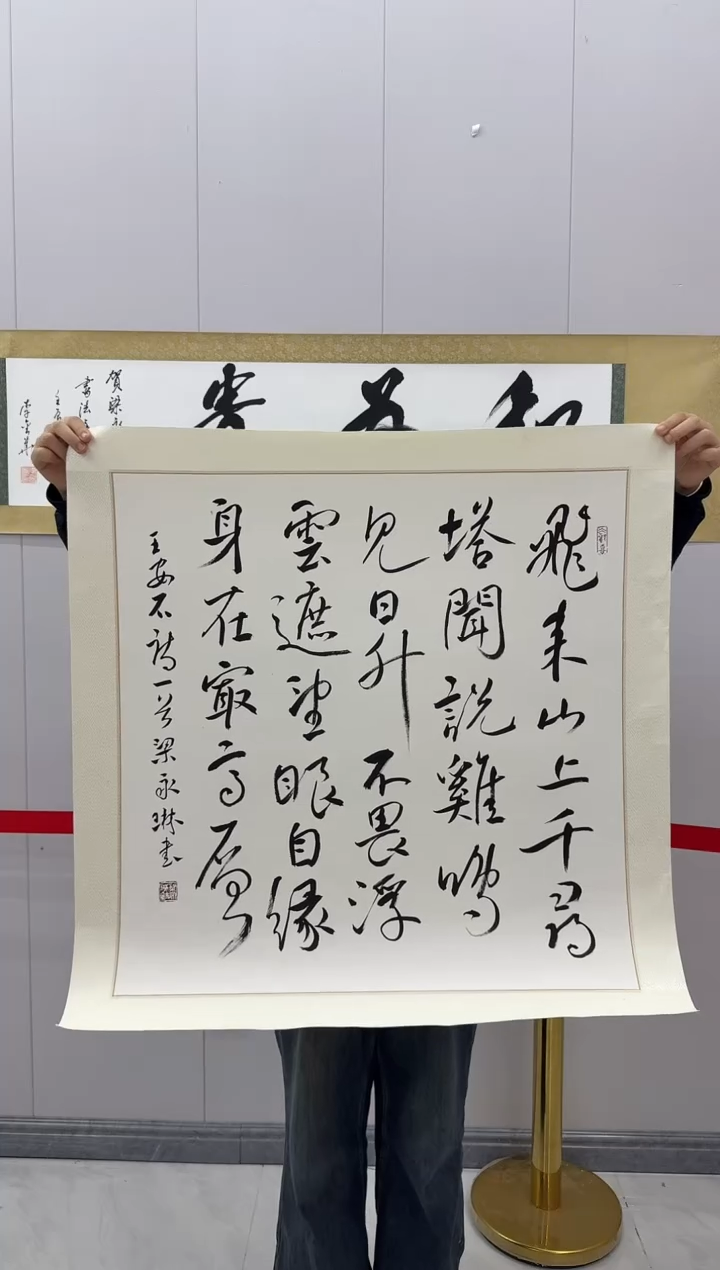 飛来山上千尋
塔聞説雞鳴
見日昇不畏浮
雲遮望眼自緣
身在最高層
王安石詩一首梁永琳書
賀梁永
書法
李